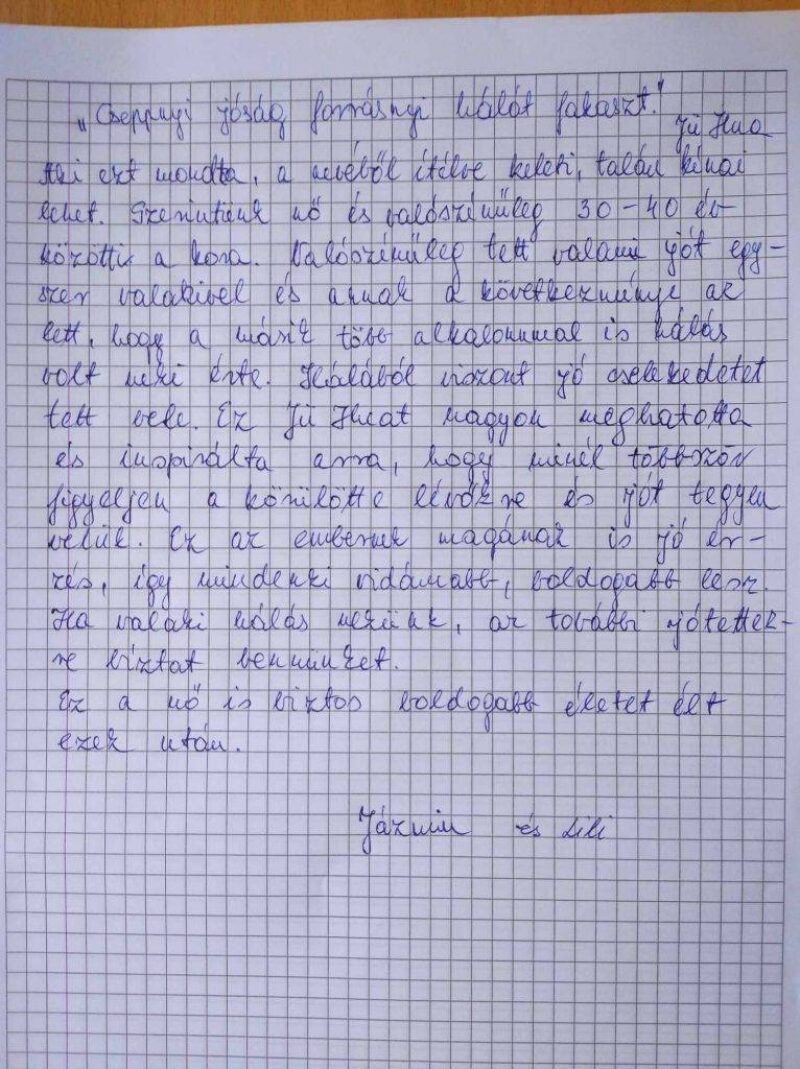 „Cseppnyi jóság forrásnyi hálát fakaszt."
Jü Hua
Aki ezt mondta, a nevéből ítélve keleti, talán kínai
lehet. Szerintünk nő és valószínűleg 30-40 év
közötti a kora. Valószínűleg tett valami jót egy-
szer valakivel és annak a következménye az
lett, hogy a másik több alkalommal is hálás
volt neki érte. Hálából viszont jó cselekedetet
tett vele. Ez Jü Huat nagyon meghatotta
és inspirálta arra, hogy minél többször
figyeljen a körülötte lévőkre és jót tegyen
velük. Ez az embernek magának is jó ér-
zés, így mindenki vidámabb, boldogabb lesz.
Ha valaki hálás nekünk, az további jótettek-
re bíztat bennünket.
Ez a nő is biztos boldogabb életet élt
ezek után.
Jázmin és Lili